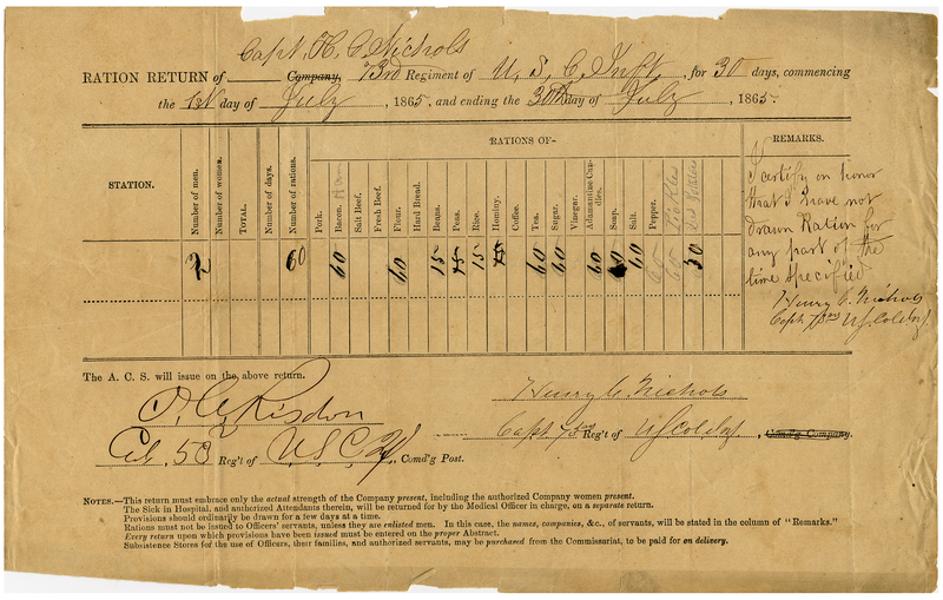 Capt. H. C. Nichols
RATION RETURN of Company, 73rd Regiment of U. S. C. Inft. , for 30 days, commencing
the 1st day of July , 1865, and ending the 30th day of July , 1865.
RATIONS OF-
REMARKS.
STATION.
Number of men.
Number of women.
TOTAL.
Number of days.
Number of rations.
Pork.
Bacon. Ham
Salt Beef.
Fresh Beef.
Flour.
Hard Bread.
Beans.
Peas.
Rice.
Hominy.
Coffee.
Tea.
Sugar.
Vinegar.
Adamantine Candles.
Soap.
Salt.
Pepper.
Pickles
2 60 60 60 15 15 15 15 60 60 60 60 60 60 60 30
I certify on honor
that I have not
drawn Ration for
any part of the
time specified
Henry C. Nichols
Capt 73rd U.S. Col. Inf.
The A. C. S. will issue on the above return.
Risdon
Henry C. Nichols
Col. 53 Reg't of U.S.C. Inf., Comd'g Post.
Capt 73rd Reg't of U.S. Col. Inf. , Comd'g Company.
NOTES.—This return must embrace only the actual strength of the Company present, including the authorized Company women present.
The Sick in Hospital, and authorized Attendants therein, will be returned for by the Medical Officer in charge, on a separate return.
Provisions should ordinarily be drawn for a few days at a time.
Rations must not be issued to Officers' servants, unless they are enlisted men. In this case, the names, companies, &c., of servants, will be stated in the column of "Remarks."
Every return upon which provisions have been issued must be entered on the proper Abstract.
Subsistence Stores for the use of Officers, their families, and authorized servants, may be purchased from the Commissariat, to be paid for on delivery.